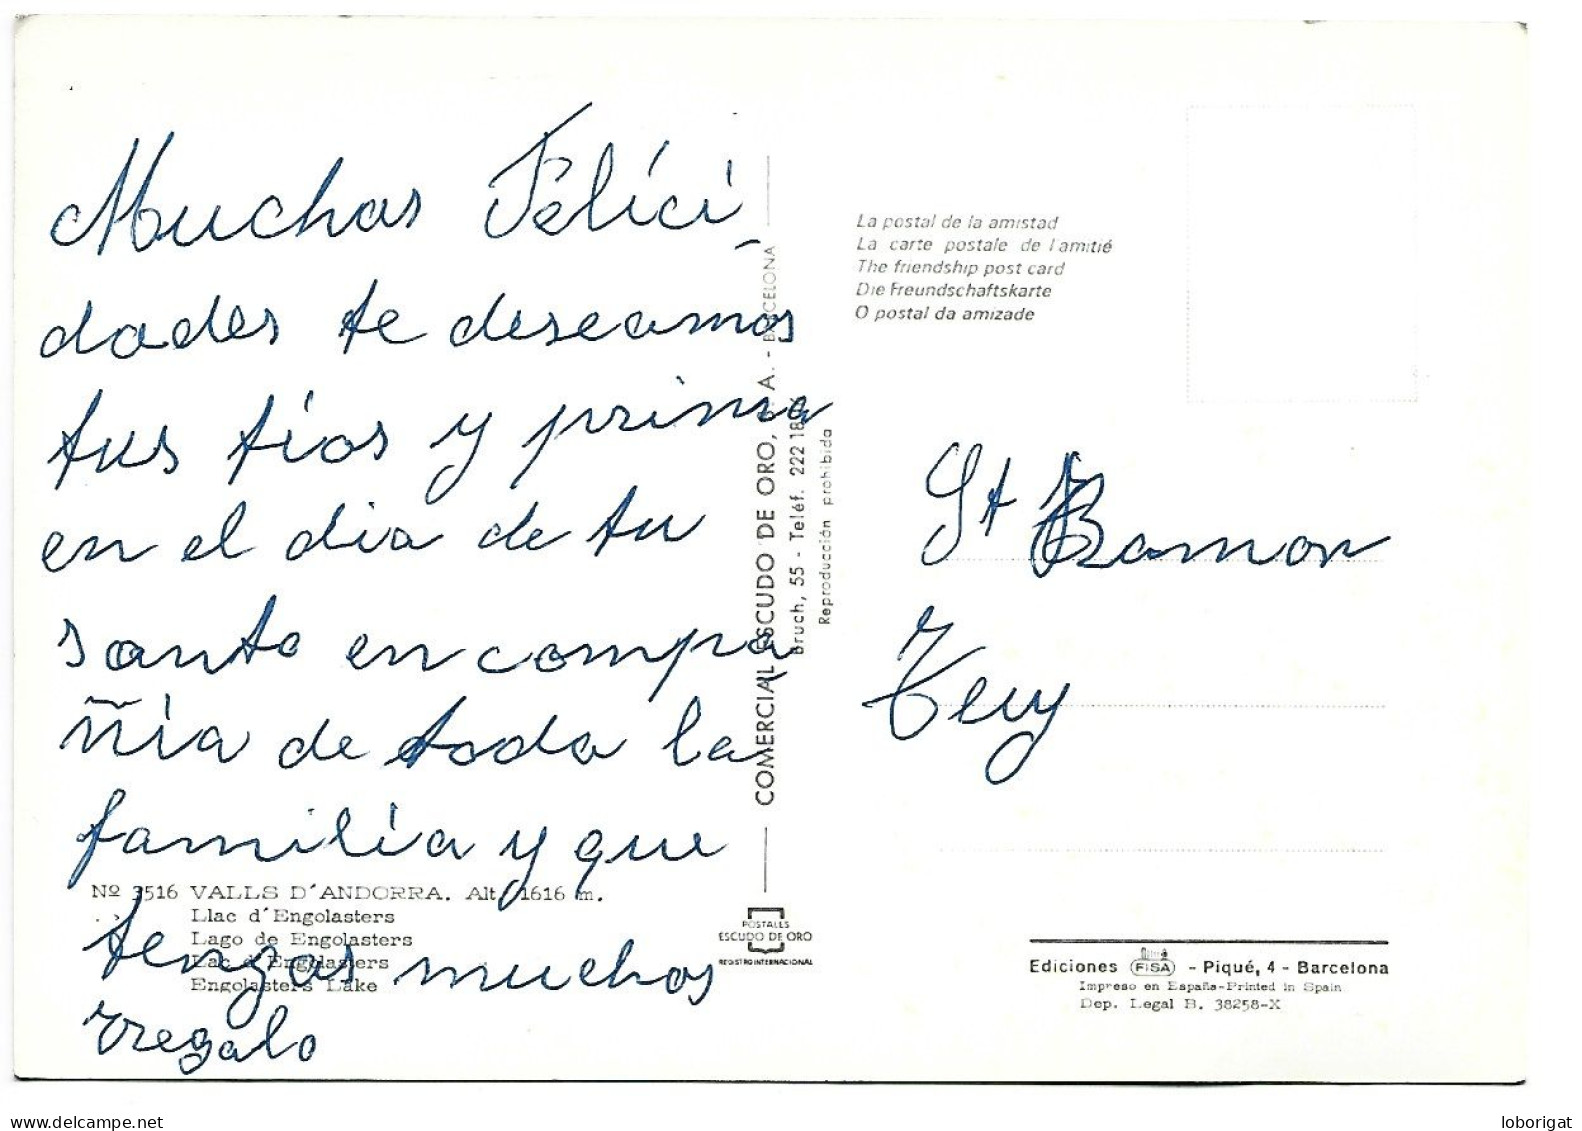 Muchas Felici_
dades te deseamos
tus tíos y prima
en el dia de tu
santo en compa
ñia de toda la
familia y que
tengas muchos
rregalo
Nº 3516 VALLS D'ANDORRA. Alt. 1616 m.
Llac d'Engolasters
Lago de Engolasters
Lac d'Engolasters
Engolasters Lake
COMERCIAL ESCUDO DE ORO, S. A. - BARCELONA
Bruch, 55 - Teléf. 222 18
Reproducción prohibida
POSTALES
ESCUDO DE ORO
REGISTRO INTERNACIONAL
La postal de la amistad
La carte postale de l'amitié
The friendship post card
Die Freundschaftskarte
O postal da amizade
St Ramon
Ediciones FISA - Piqué, 4 - Barcelona
Impreso en España-Printed in Spain
Dep. Legal B. 38258-X
loborigat